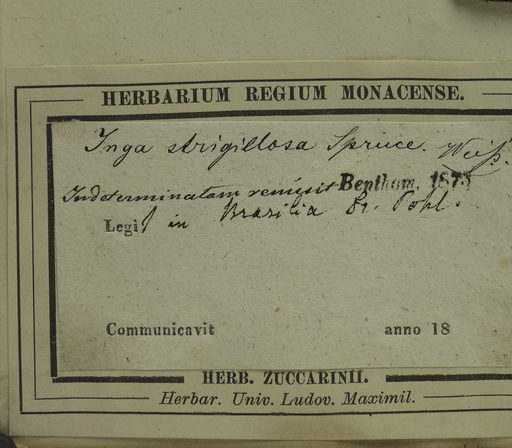 HERBARIUM REGIUM MONACENSE.
Inga strigillosa Spruce. Weiß.
Indeterminatam remisit Bentham, 1873
Legit in Brasilia Dr. Pohl.
Communicavit anno 18
HERB. ZUCCARINII.
Herbar. Univ. Ludov. Maximil.